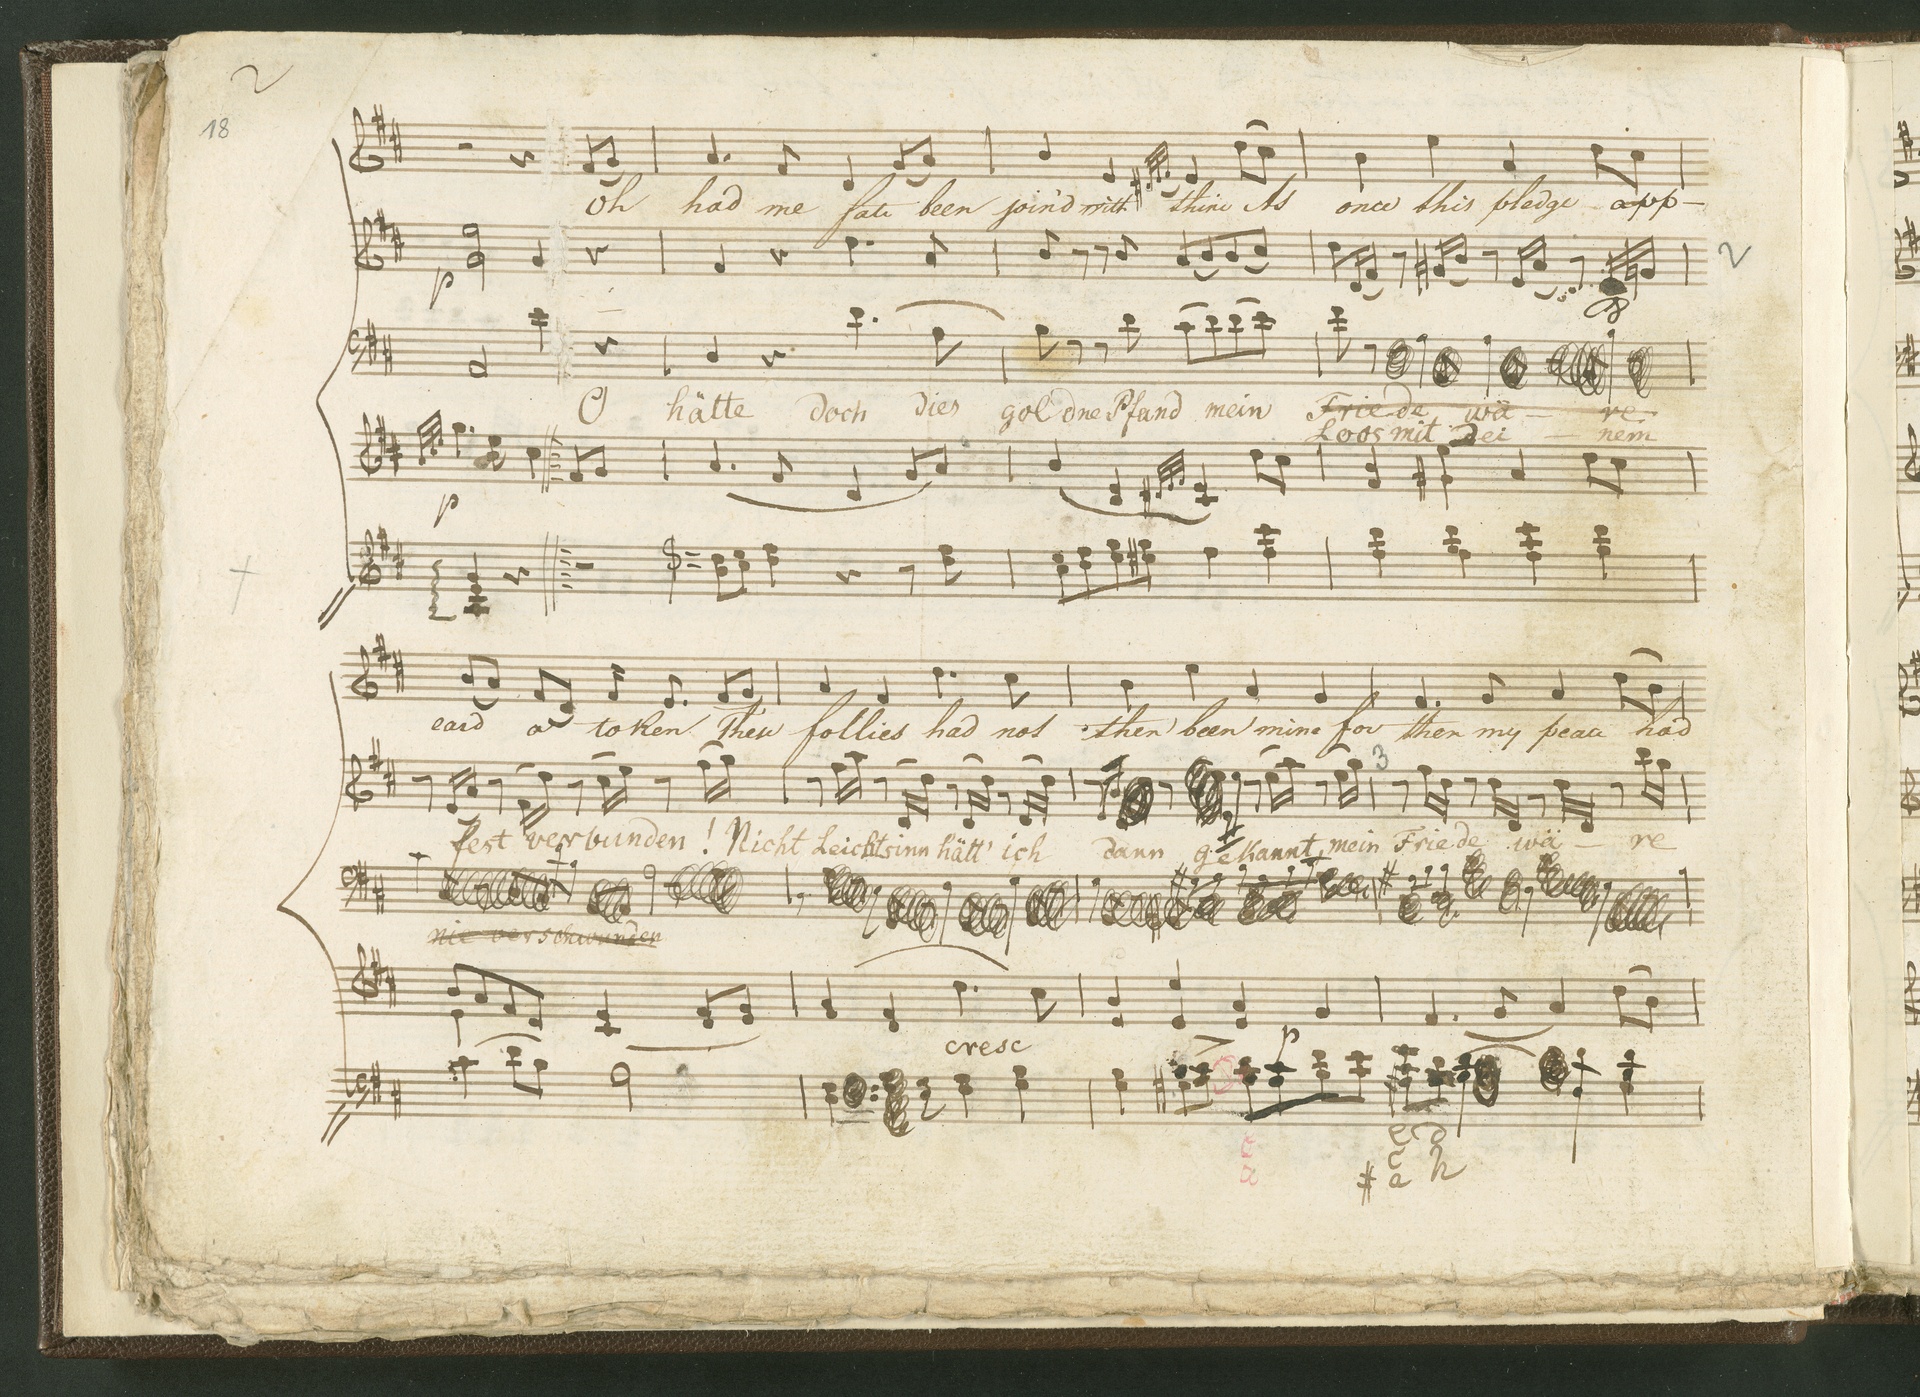 2
18
Oh had me fate been join'd with thine As once this pledge app-
p
2
O hätte doch dies goldne Pfand mein Friede wä - re
Loos mit Dei - nem
p
eard a token These follies had not then been mine for then my peace had
3
fest verbunden! Nicht Leichtsinn hätt' ich dann gekannt, mein Friede wä - re
nie verschwunden
cresc
p
e d
c h
# a
e
a